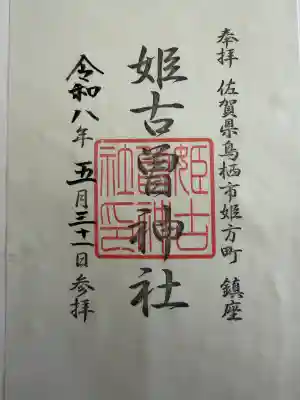 奉拝 佐賀県鳥栖市姫方町 鎮座
姫古曽神社
姫古曽神社印
令和八年 五月三十一日参拝